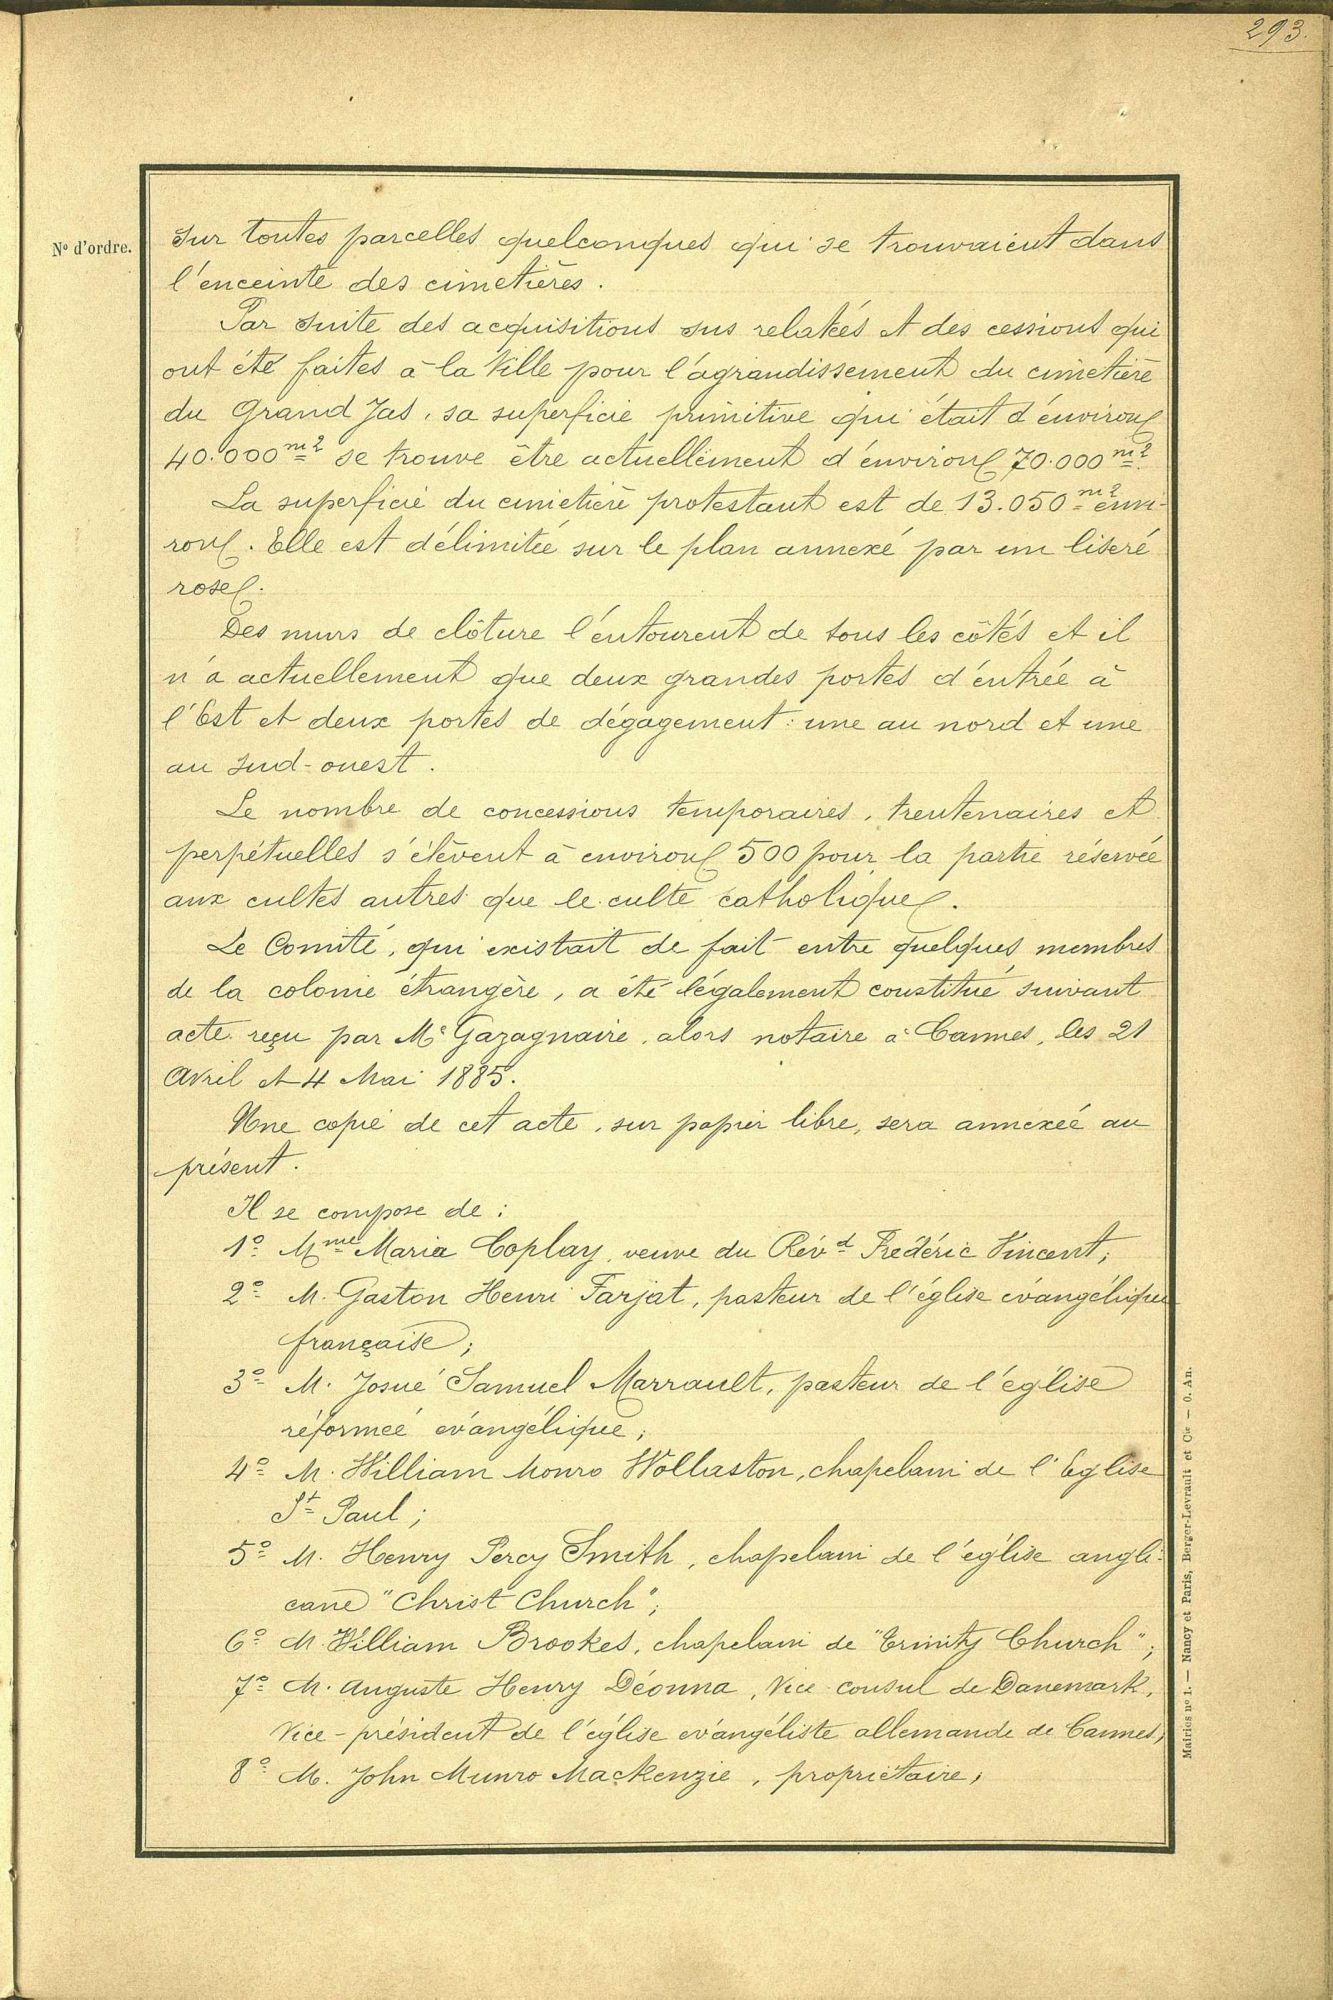 293.
N° d'ordre.
sur toutes parcelles quelconques qui se trouvaient dans
l'enceinte des cimetières.
Par suite des acquisitions sus relatés et des cessions qui
ont été faites à la Ville pour l'agrandissement du cimetière
du Grand Jas, sa superficie primitive qui était d'environ
40.000 m2 se trouve être actuellement d'environ 70.000 m2.
La superficie du cimetière protestant est de 13.050 m2 envi-
ron. Elle est délimitée sur le plan annexé par un liseré
rose.
Des murs de clôture l'entourent de tous les côtés et il
n'a actuellement que deux grandes portes d'entrée à
l'Est et deux portes de dégagement : une au nord et une
au sud-ouest.
Le nombre de concessions temporaires, trentenaires et
perpétuelles s'élèvent à environ 500 pour la partie réservée
aux cultes autres que le culte catholique.
Le Comité, qui existait de fait entre quelques membres
de la colonie étrangère, a été légalement constitué suivant
acte reçu par Me Gazagnaire, alors notaire à Cannes, les 21
Avril et 4 Mai 1885.
Une copie de cet acte, sur papier libre, sera annexée au
présent.
Il se compose de :
1° Mme Maria Coplay, veuve du Révd Frédéric Vincent;
2° M. Gaston Henri Farjat, pasteur de l'église évangélique
française;
3° M. Josué Samuel Marrault, pasteur de l'église
réformée évangélique;
4° M. William Monro Wollaston, chapelain de l'Eglise
St Paul;
5° M. Henry Percy Smith, chapelain de l'église angli-
cane "Christ Church";
6° M. William Brookes, chapelain de "Trinity Church";
7° M. Auguste Henry Déonna, Vice consul de Danemark,
Vice-président de l'église évangéliste allemande de Cannes;
8° M. John Munro Mackenzie, propriétaire;
Mairies n° 1. — Nancy et Paris, Berger-Levrault et Cie — O. An.